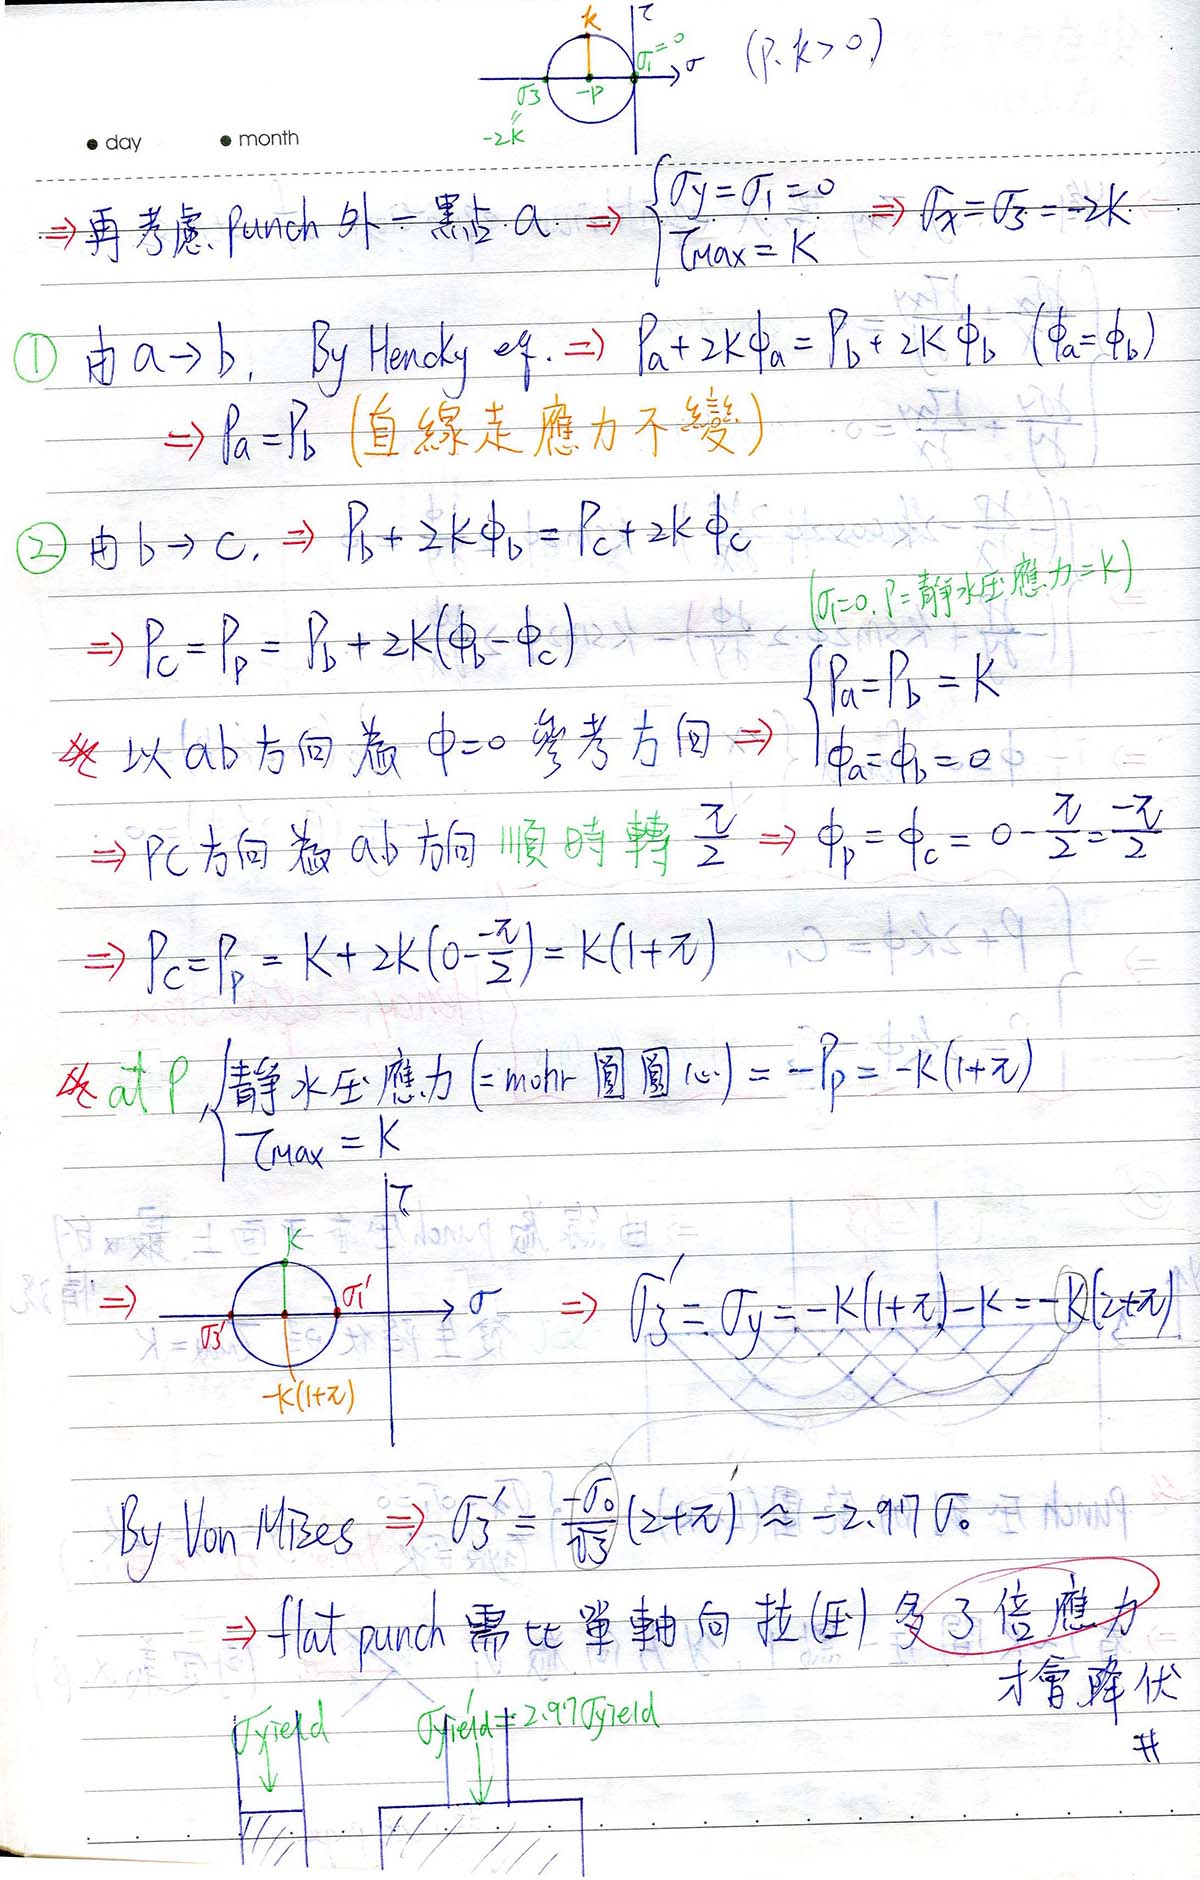 τ
k
σ₁=0
σ
(p. k>0)
σ₃
-p
-2k
• day • month
⇒ 再考慮 punch 外一點 a. ⇒ { σy=σ₁=0 ⇒ σx=σ₃=-2K
τMax=K
① 由 a→b, By Hencky eq. ⇒ Pa+2Kϕa=Pb+2Kϕb (ϕa=ϕb)
⇒ Pa=Pb (直線走應力不變)
② 由 b→c. ⇒ Pb+2Kϕb=Pc+2Kϕc
(σ₁=0. P=靜水压應力=K)
⇒ Pc=Pp=Pb+2K(ϕb-ϕc)
※ 以 ab 方向為 ϕ=0 參考方向 ⇒ { Pa=Pb=K
ϕa=ϕb=0
⇒ PC方向為 ab 方向 順時轉 π/2 ⇒ ϕp=ϕc=0-π/2=-π/2
⇒ Pc=Pp=K+2K(0--π/2)=K(1+π)
※ at P, { 靜水压應力(=mohr 圓圓心)=-Pp=-K(1+π)
τMax=K
τ
K
⇒ σ₃' σ₁' σ ⇒ σ₃'=σy=-K(1+π)-K=-K(2+π)
-K(1+π)
By Von Mises ⇒ σ₃'=-σ₀/√3(2+π)≈-2.97σ₀
⇒ flat punch 需比單軸向拉(压)多了倍應力
才會降伏
#
σyield σyield'=2.97σyield